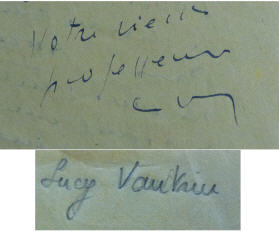 Votre vieux
professeur
Lucy Vautrin